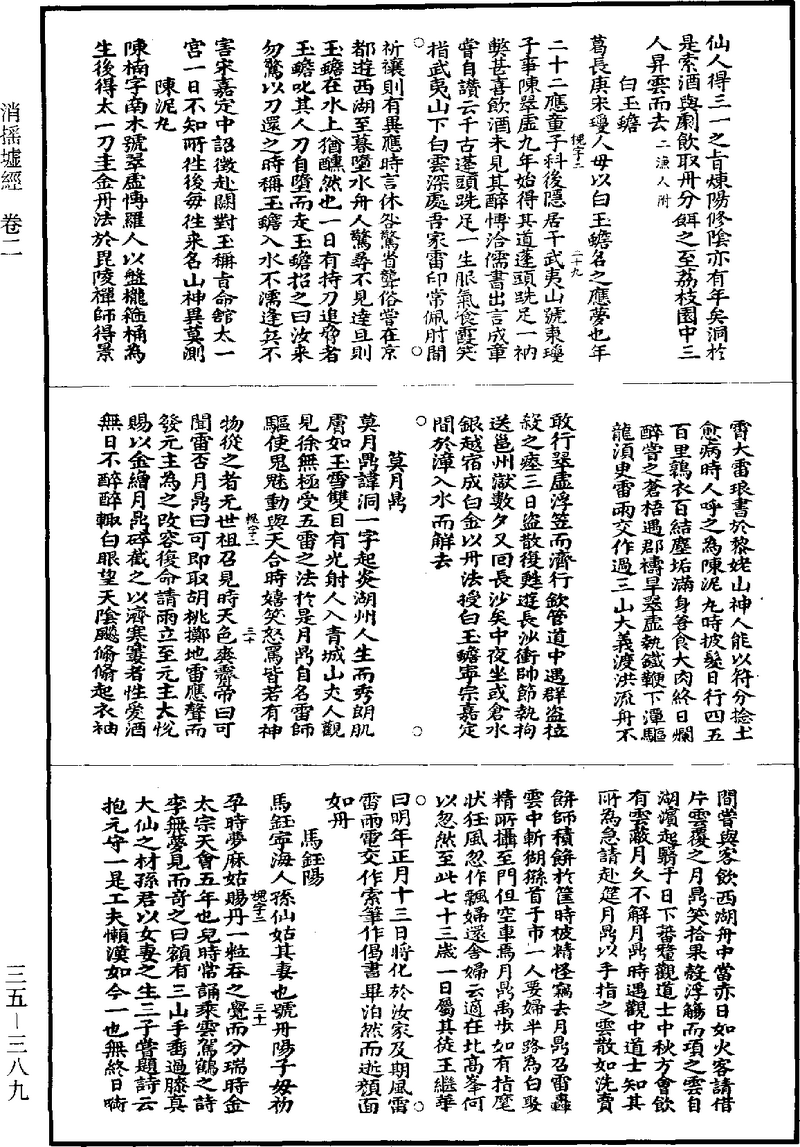 消搖墟經 卷二
仙人得三一之旨煉陽修陰亦有年矣洞於
是索酒與劇飲取丹分餌之至荔枝園中三
人昇雲而去 二漁人附
白玉蟾
葛長庚宋瓊人母以白玉蟾名之應夢也年
槐字二 二十九
二十二應童子科後隱居于武夷山號東瓊
子事陳翠虛九年始得其道蓬頭跣足一衲
弊甚喜飲酒未見其醉博洽儒書出言成章
嘗自讚云千古蓬頭跣足一生服氣餐霞笑
指武夷山下白雲深處吾家雷印常佩肘間
祈禳則有異應時言休咎驚省聾俗嘗在京
都遊西湖至暮墮水舟人驚尋不見達旦則
玉蟾在水上猶醺然也一日有持刀追脅者
玉蟾叱其人刀自墮而走玉蟾招之曰汝來
勿驚以刀還之時稱玉蟾入水不濡逢兵不
害宋嘉定中詔徵赴闕對玉稱旨命館太一
宮一日不知所往後每往來名山神異莫測
陳泥丸
陳楠字南木號翠虛博羅人以盤櫳箍桶為
生後得太一刀圭金丹法於毘陵禪師得景
霄大雷琅書於黎姥山神人能以符分捻土
愈病時人呼之為陳泥丸時披髮日行四五
百里鶉衣百結塵垢滿身善食犬肉終日爛
醉嘗之蒼梧遇郡禱旱翠虛執鐵鞭下潭驅
龍須臾雷雨交作過三山大義渡洪流舟不
敢行翠虛浮笠而濟行欽管道中遇群盜拉
殺之瘞三日盜散復甦遊長沙衝帥節執拘
送邕州獄數夕又回長沙矣中夜坐或倉水
銀越宿成白金以丹法授白玉蟾寧宗嘉定
間於漳入水而解去
莫月鼎
莫月鼎諱洞一字起炎湖州人生而秀朗肌
膚如玉雪雙目有光射人入青城山丈人觀
見徐無極受五雷之法於是月鼎自名雷師
驅使鬼魅動與天合時嬉笑怒罵皆若有神
槐字二 三十
物從之者元世祖召見時天色爽霽帝曰可
聞雷否月鼎曰可即取胡桃擲地雷應聲而
發元主為之改容復命請雨立至元主大悅
賜以金繒月鼎碎截之以濟寒窶者性愛酒
無日不醉醉輒白眼望天陰飈翛翛起衣袖
間嘗與客飲西湖舟中當赤日如火客請借
片雲覆之月鼎笑拾果殼浮觴而項之雲自
湖濱起翳于日下蕃釐觀道士中秋方會飲
有雲蔽月久不解月鼎時遇觀中道士知其
所為急請赴筵月鼎以手指之雲散如洗賣
餅師積餅於筐時被精怪竊去月鼎召雷轟
雲中斬猢猻首于市一人娶婦半路為白猿
精所攝至門但空車焉月鼎禹步如有指麾
狀狂風忽作飄婦還舍婦云適在北高峯何
以忽然至此七十三歲一日屬其徒王繼華
曰明年正月十三日將化於汝家及期風雷
雷雨電交作索筆作偈書畢泊然而逝顏面
如丹
馬鈺陽
馬鈺寧海人孫仙姑其妻也號丹陽子母初
槐字二 三十一
孕時夢麻姑賜丹一粒吞之覺而分瑞時金
太宗天會五年也兒時常誦乘雲駕鶴之詩
李無夢見而奇之曰額有三山手垂過膝真
大仙之材孫君以女妻之生三子嘗題詩云
抱元守一是工夫懶漢如今一也無終日嗬
三五－三八九